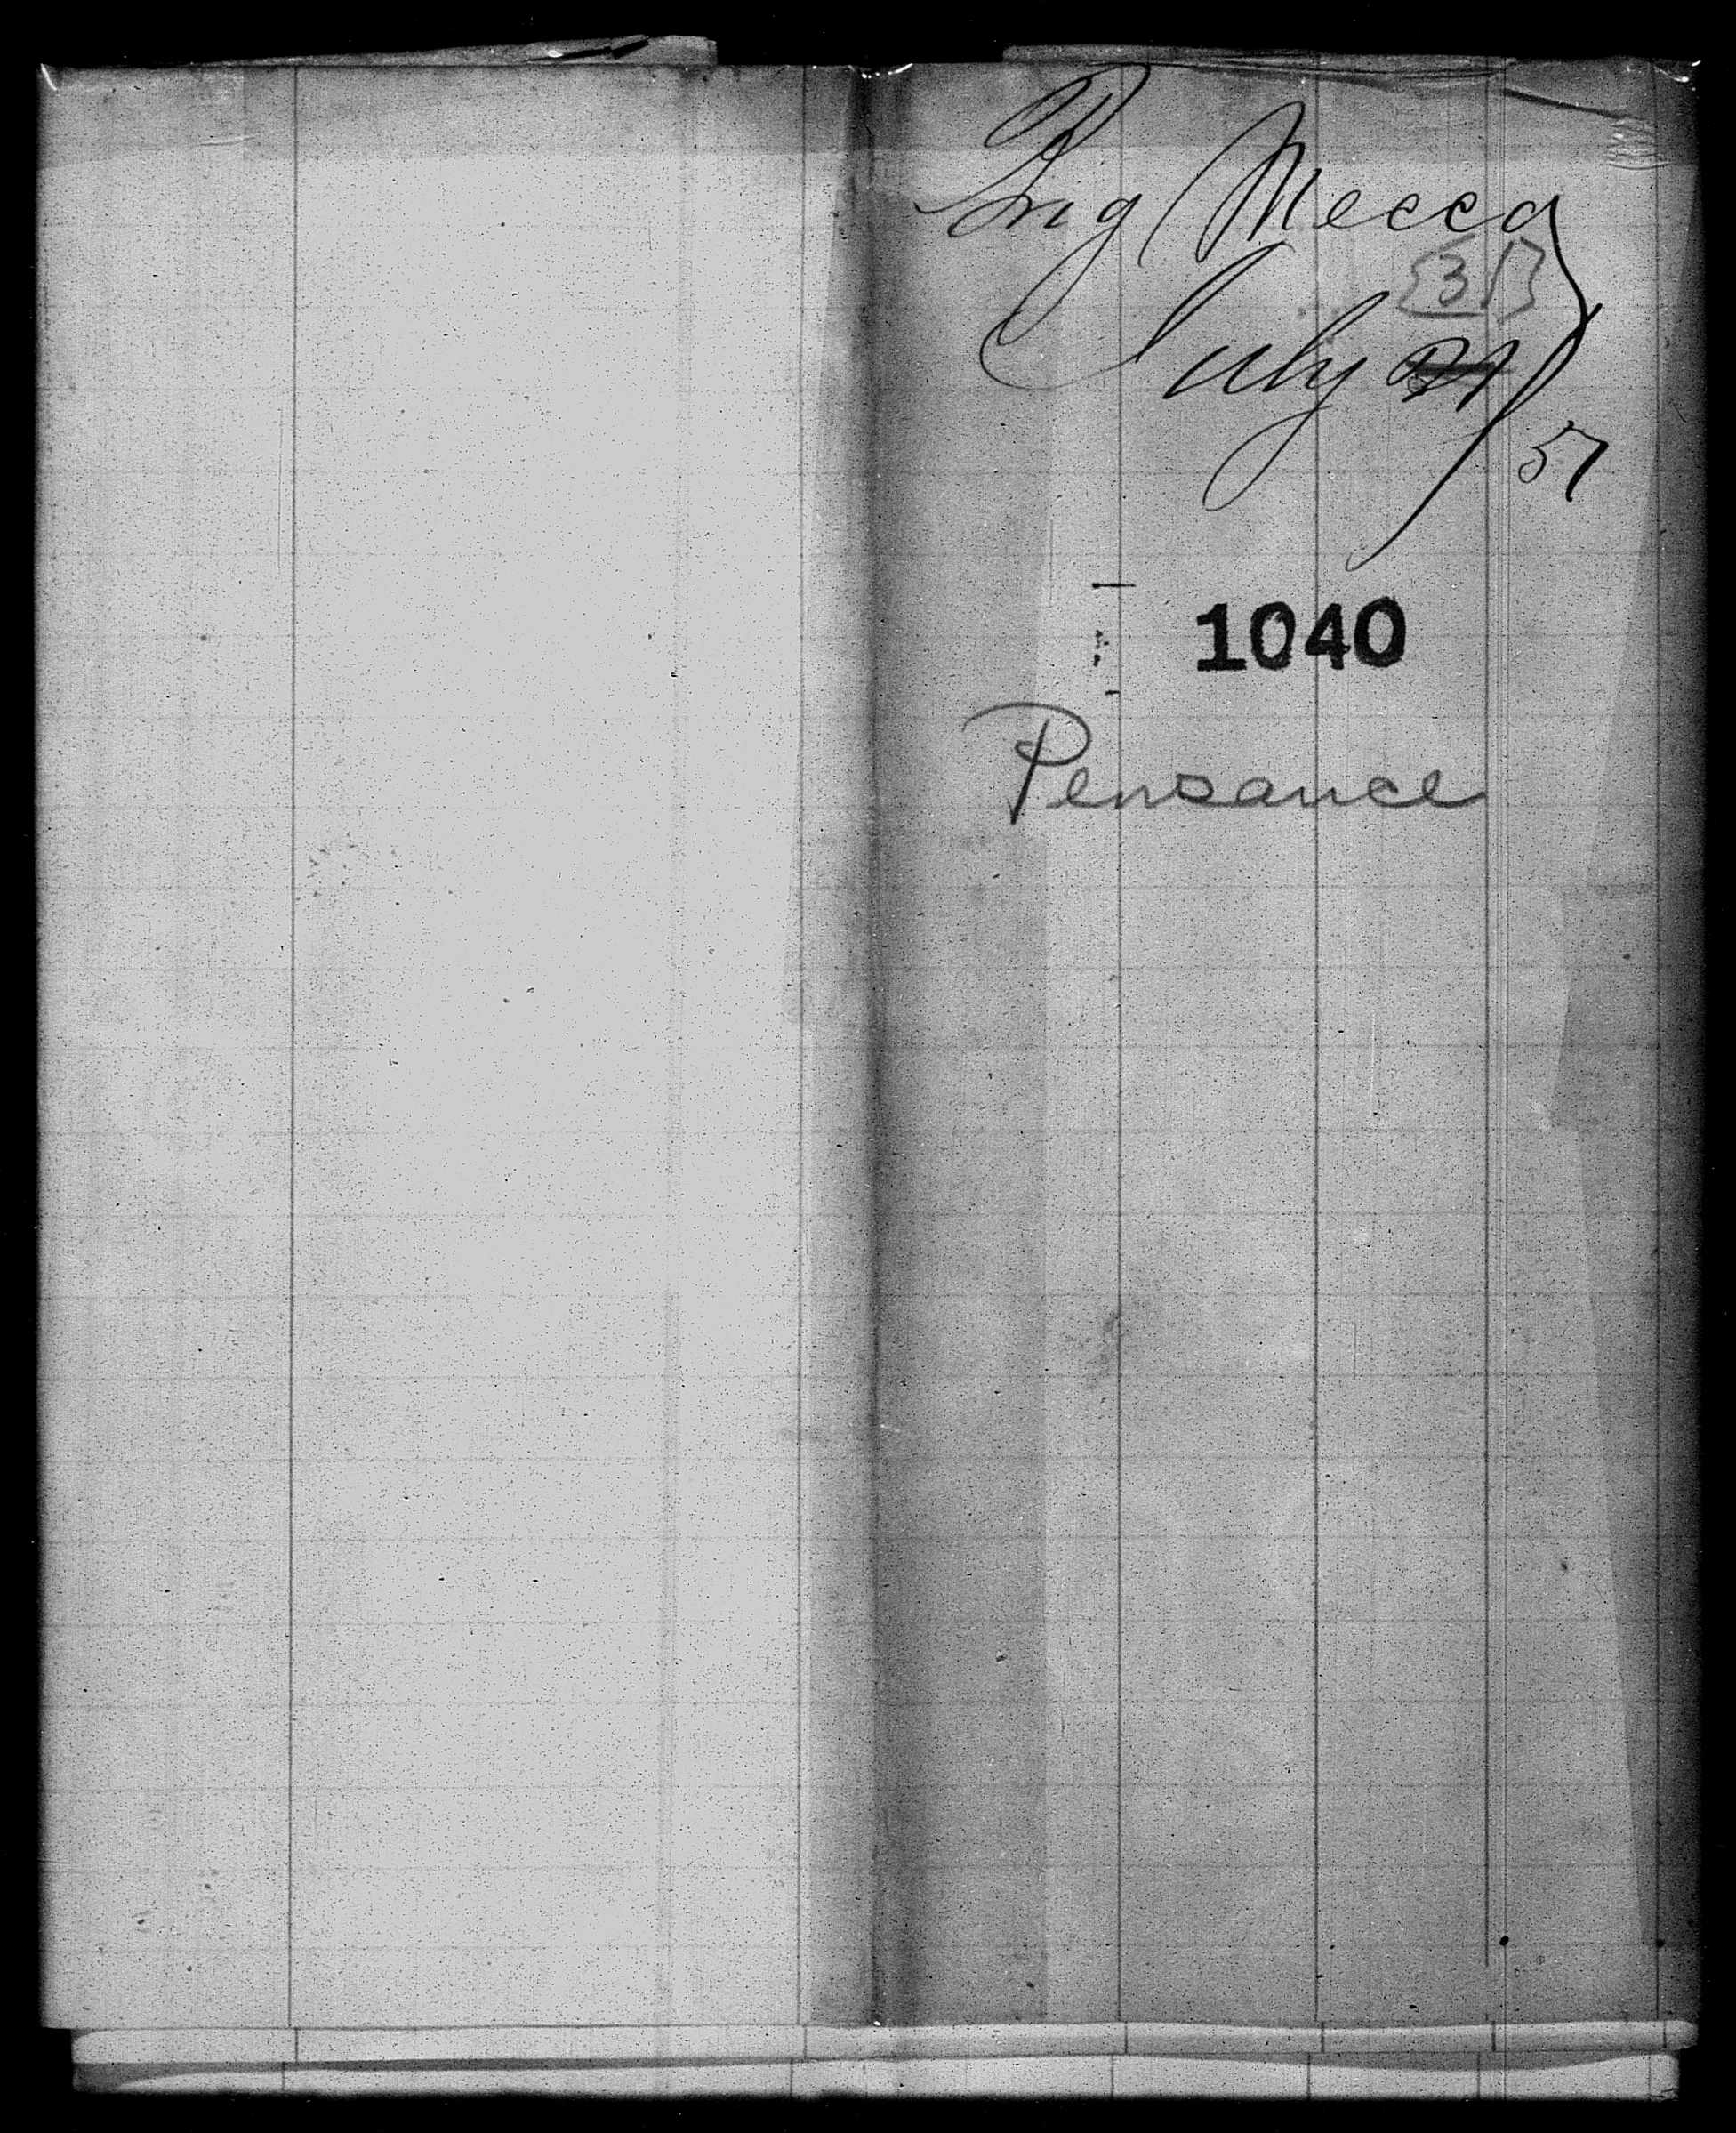 Brig Mecca
{31}
July 21
57
1040
Pensance